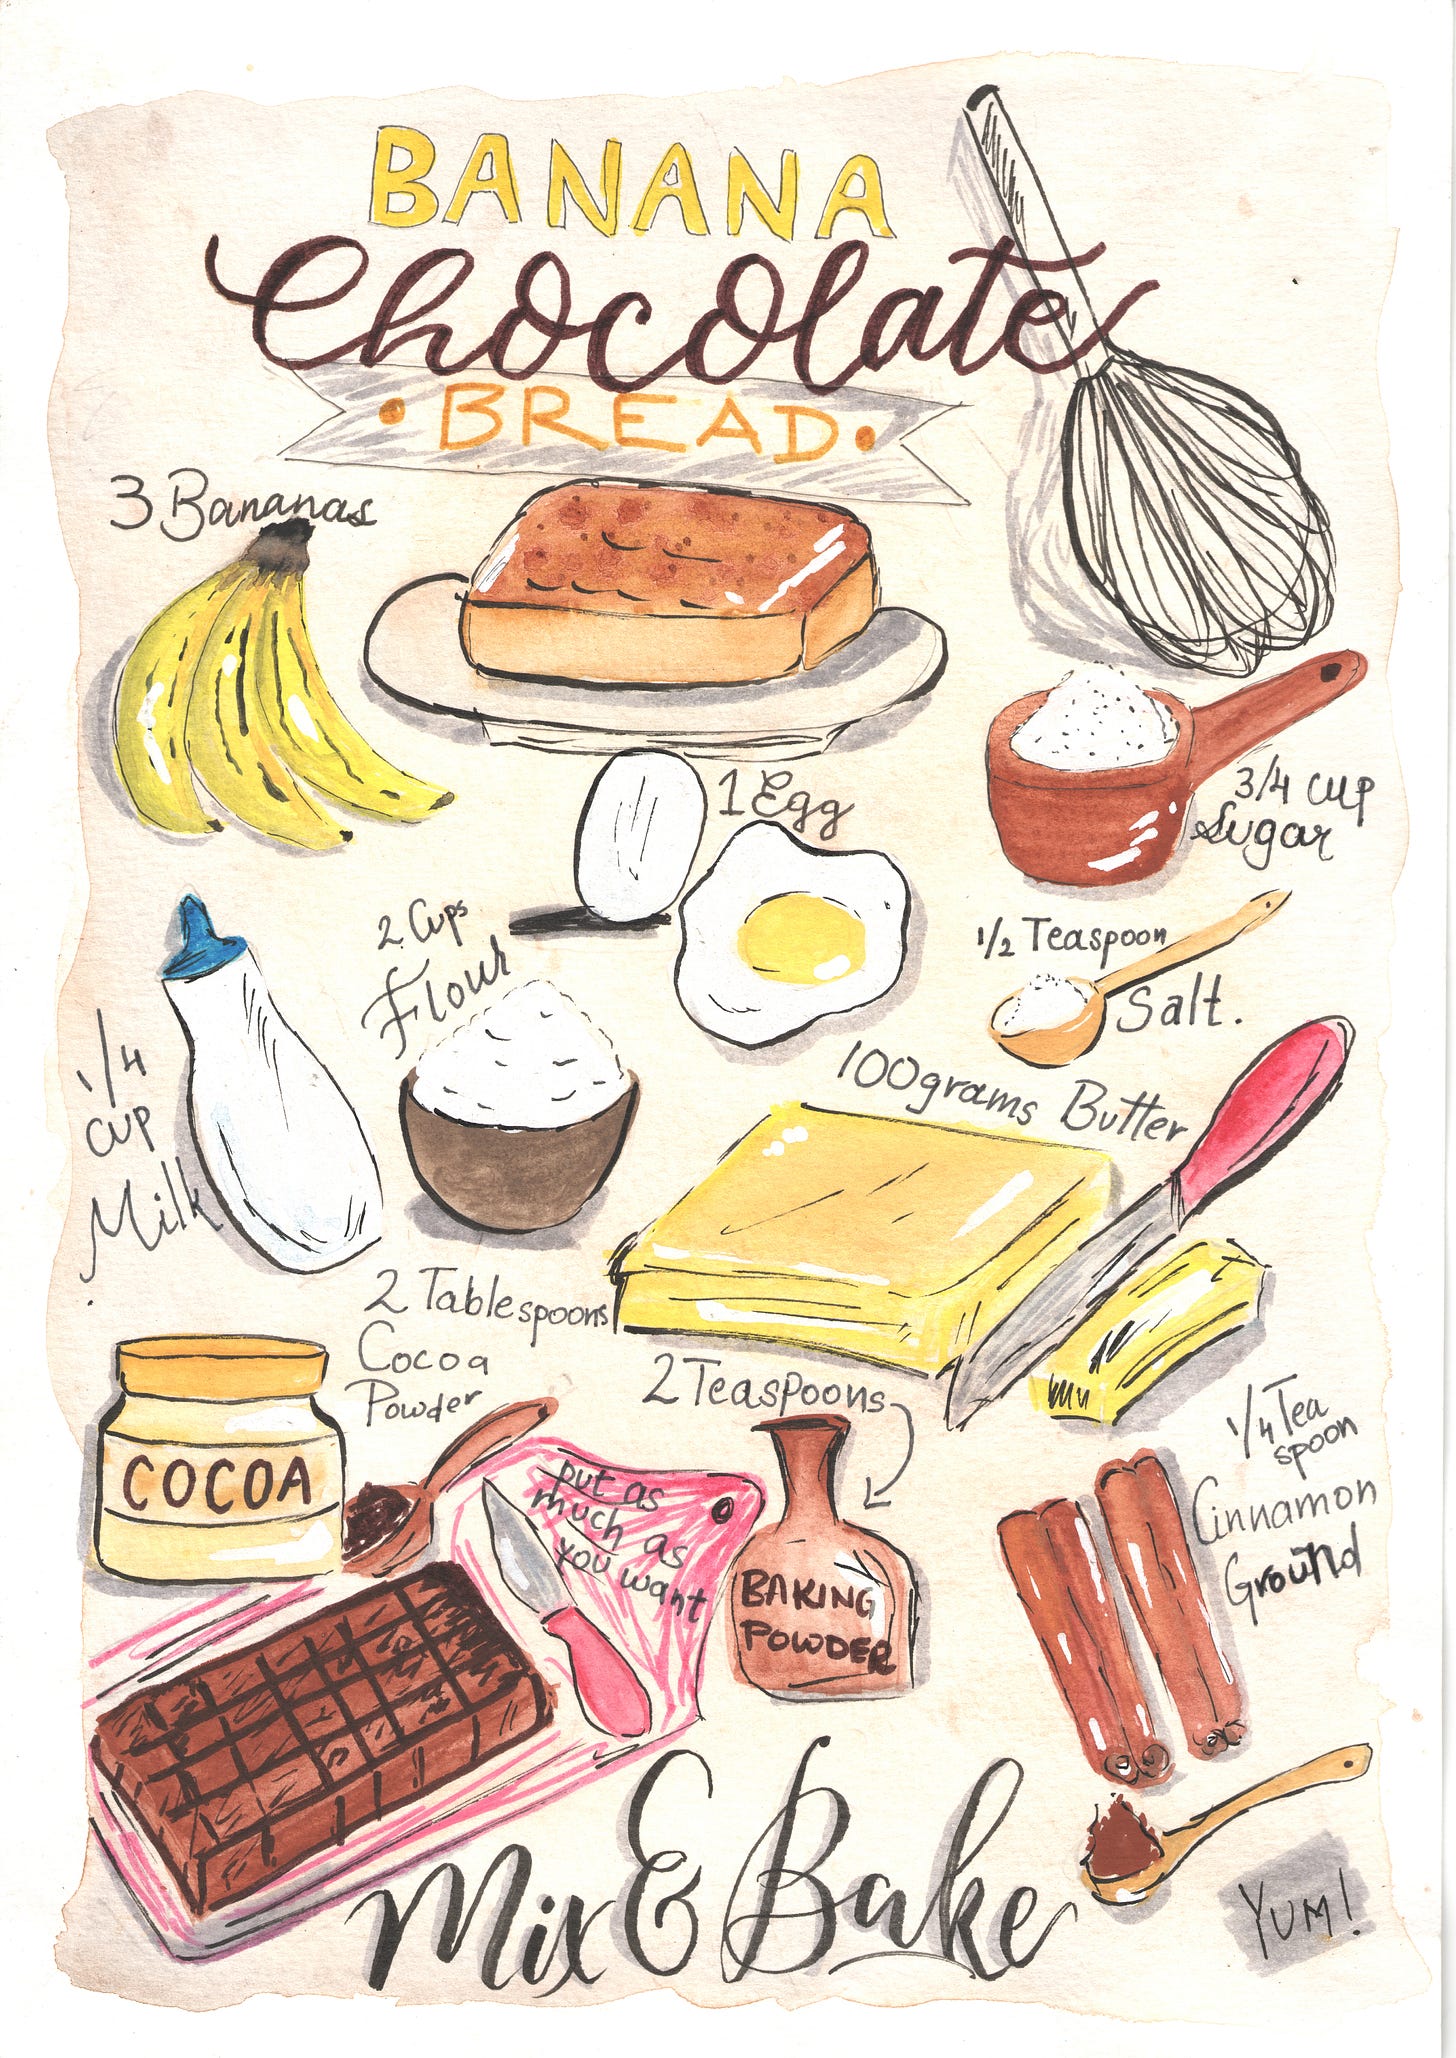 BANANA
Chocolate
• BREAD •
3 Bananas
1 Egg
3/4 cup
Sugar
2 Cups
Flour
1/2 Teaspoon
Salt.
1/4
cup
Milk
100grams Butter
2 Tablespoons
Cocoa
Powder
2 Teaspoons
1/4 Tea
spoon
Cinnamon
Ground
COCOA
put as
much as
you want
BAKING
POWDER
Mix & Bake
YUM!